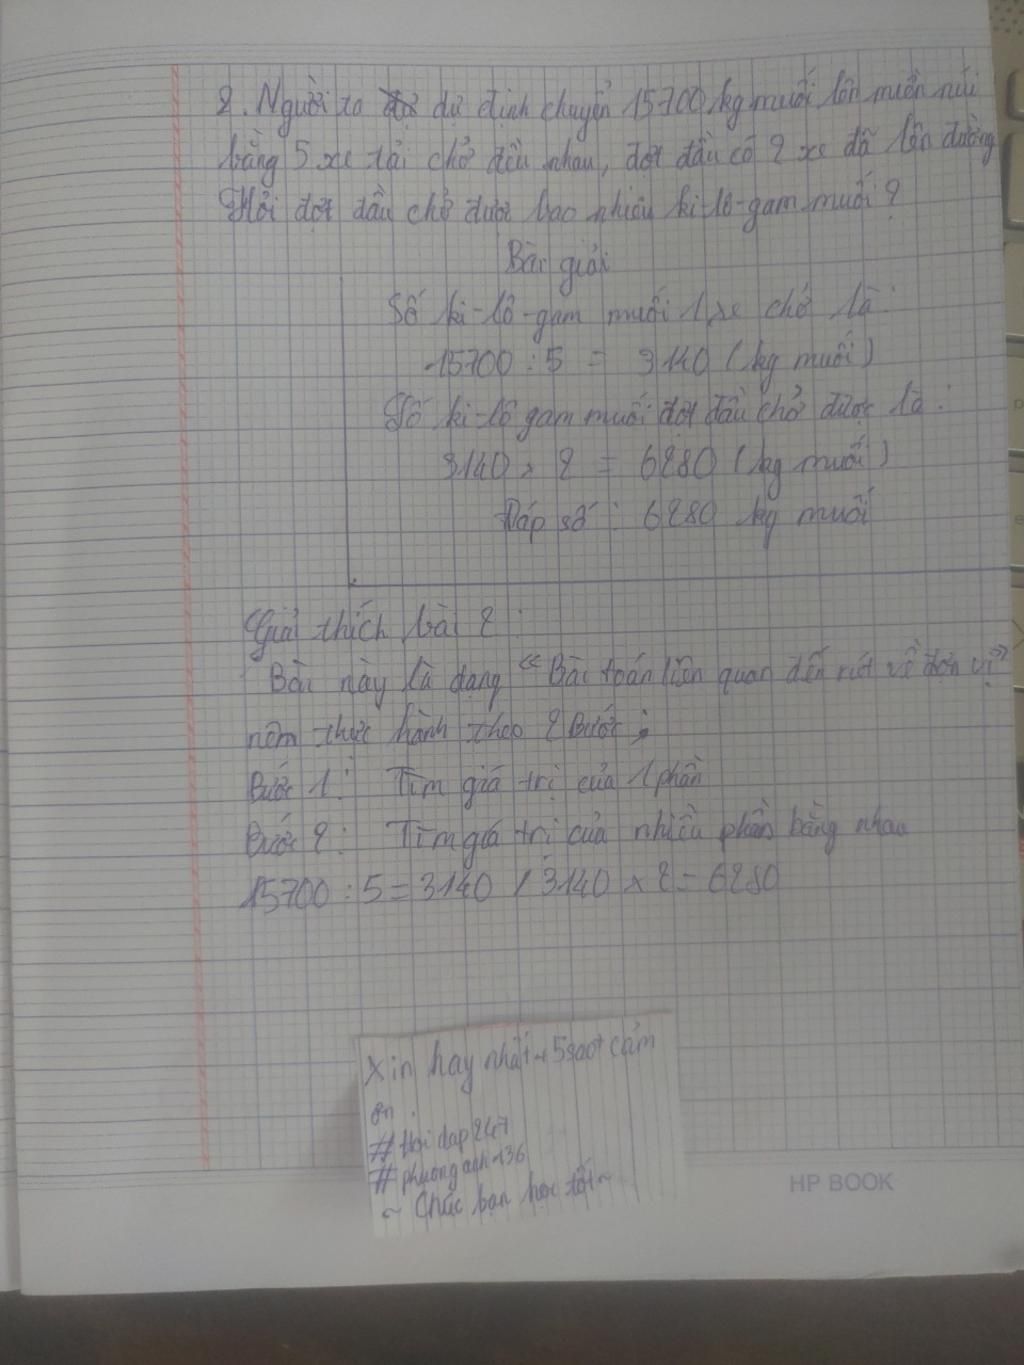 2. Người ta dự định chuyển 15700 kg muối lên miền núi
bằng 5 xe tải chở đều nhau, đợt đầu có 2 xe đã lên đường
Hỏi đợt đầu chở được bao nhiêu ki-lô-gam muối?
Bài giải
Số ki-lô-gam muối 1 xe chở là:
15700 : 5 = 3140 (kg muối)
Số ki-lô gam muối đợt đầu chở được là:
3140 x 2 = 6280 (kg muối)
Đáp số : 6280 kg muối
Giải thích bài 2 :
Bài này là dạng "Bài toán liên quan đến rút về đơn vị"
nêm thực hành theo 2 Bước :
Bước 1 : Tìm giá trị của 1 phần
Bước 2 : Tìm giá trị của nhiều phần bằng nhau
15700 : 5 = 3140 / 3140 x 2 = 6280
Xin hay nhất + 5sao + cảm
ơn.
#Hoidap247
#phuonganh136
~ Chúc bạn học tốt ~
HP BOOK